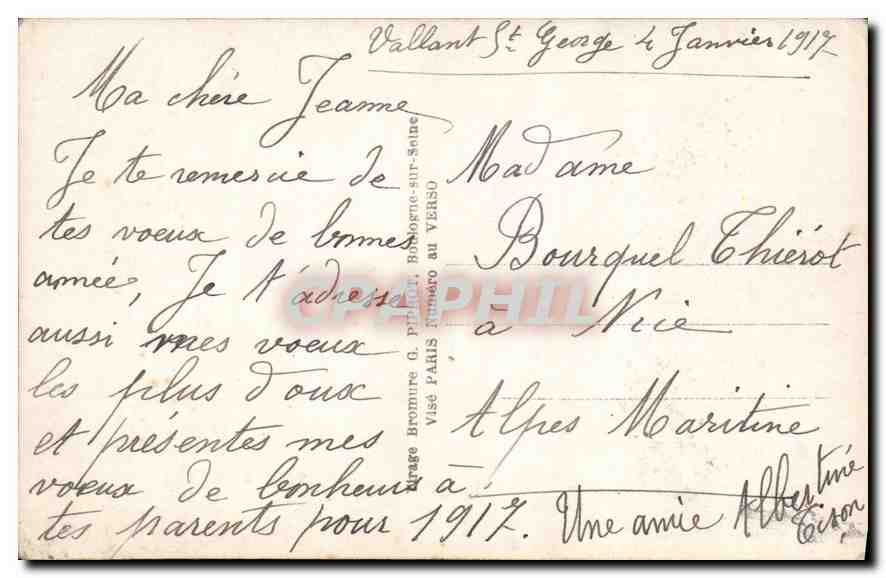 Vallant St George 4 Janvier 1917
Ma chère Jeanne
Je te remercie de
tes voeux de bonnes
année, Je t'adresse
aussi mes voeux
les plus doux
et présentes mes
voeux de bonheur à
tes parents pour 1917.
Une amie Albertine
Tison
Madame
Bourquel Thiérot
à Nice
Alpes Maritine
Tirage Bromure G. PIPROT, Boulogne-sur-Seine
Visé PARIS Numéro au VERSO
CPAPHIL